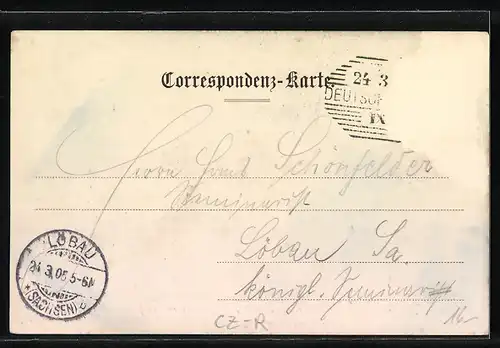 Correspondenz-Karte
24 3
DEUTSCH
IX
Herrn Hans Schönfelder
Seminarist
Löbau Sa.
königl. Seminar
LÖBAU
24.3.05.5-6N
*(SACHSEN) b
CZ-R
16-